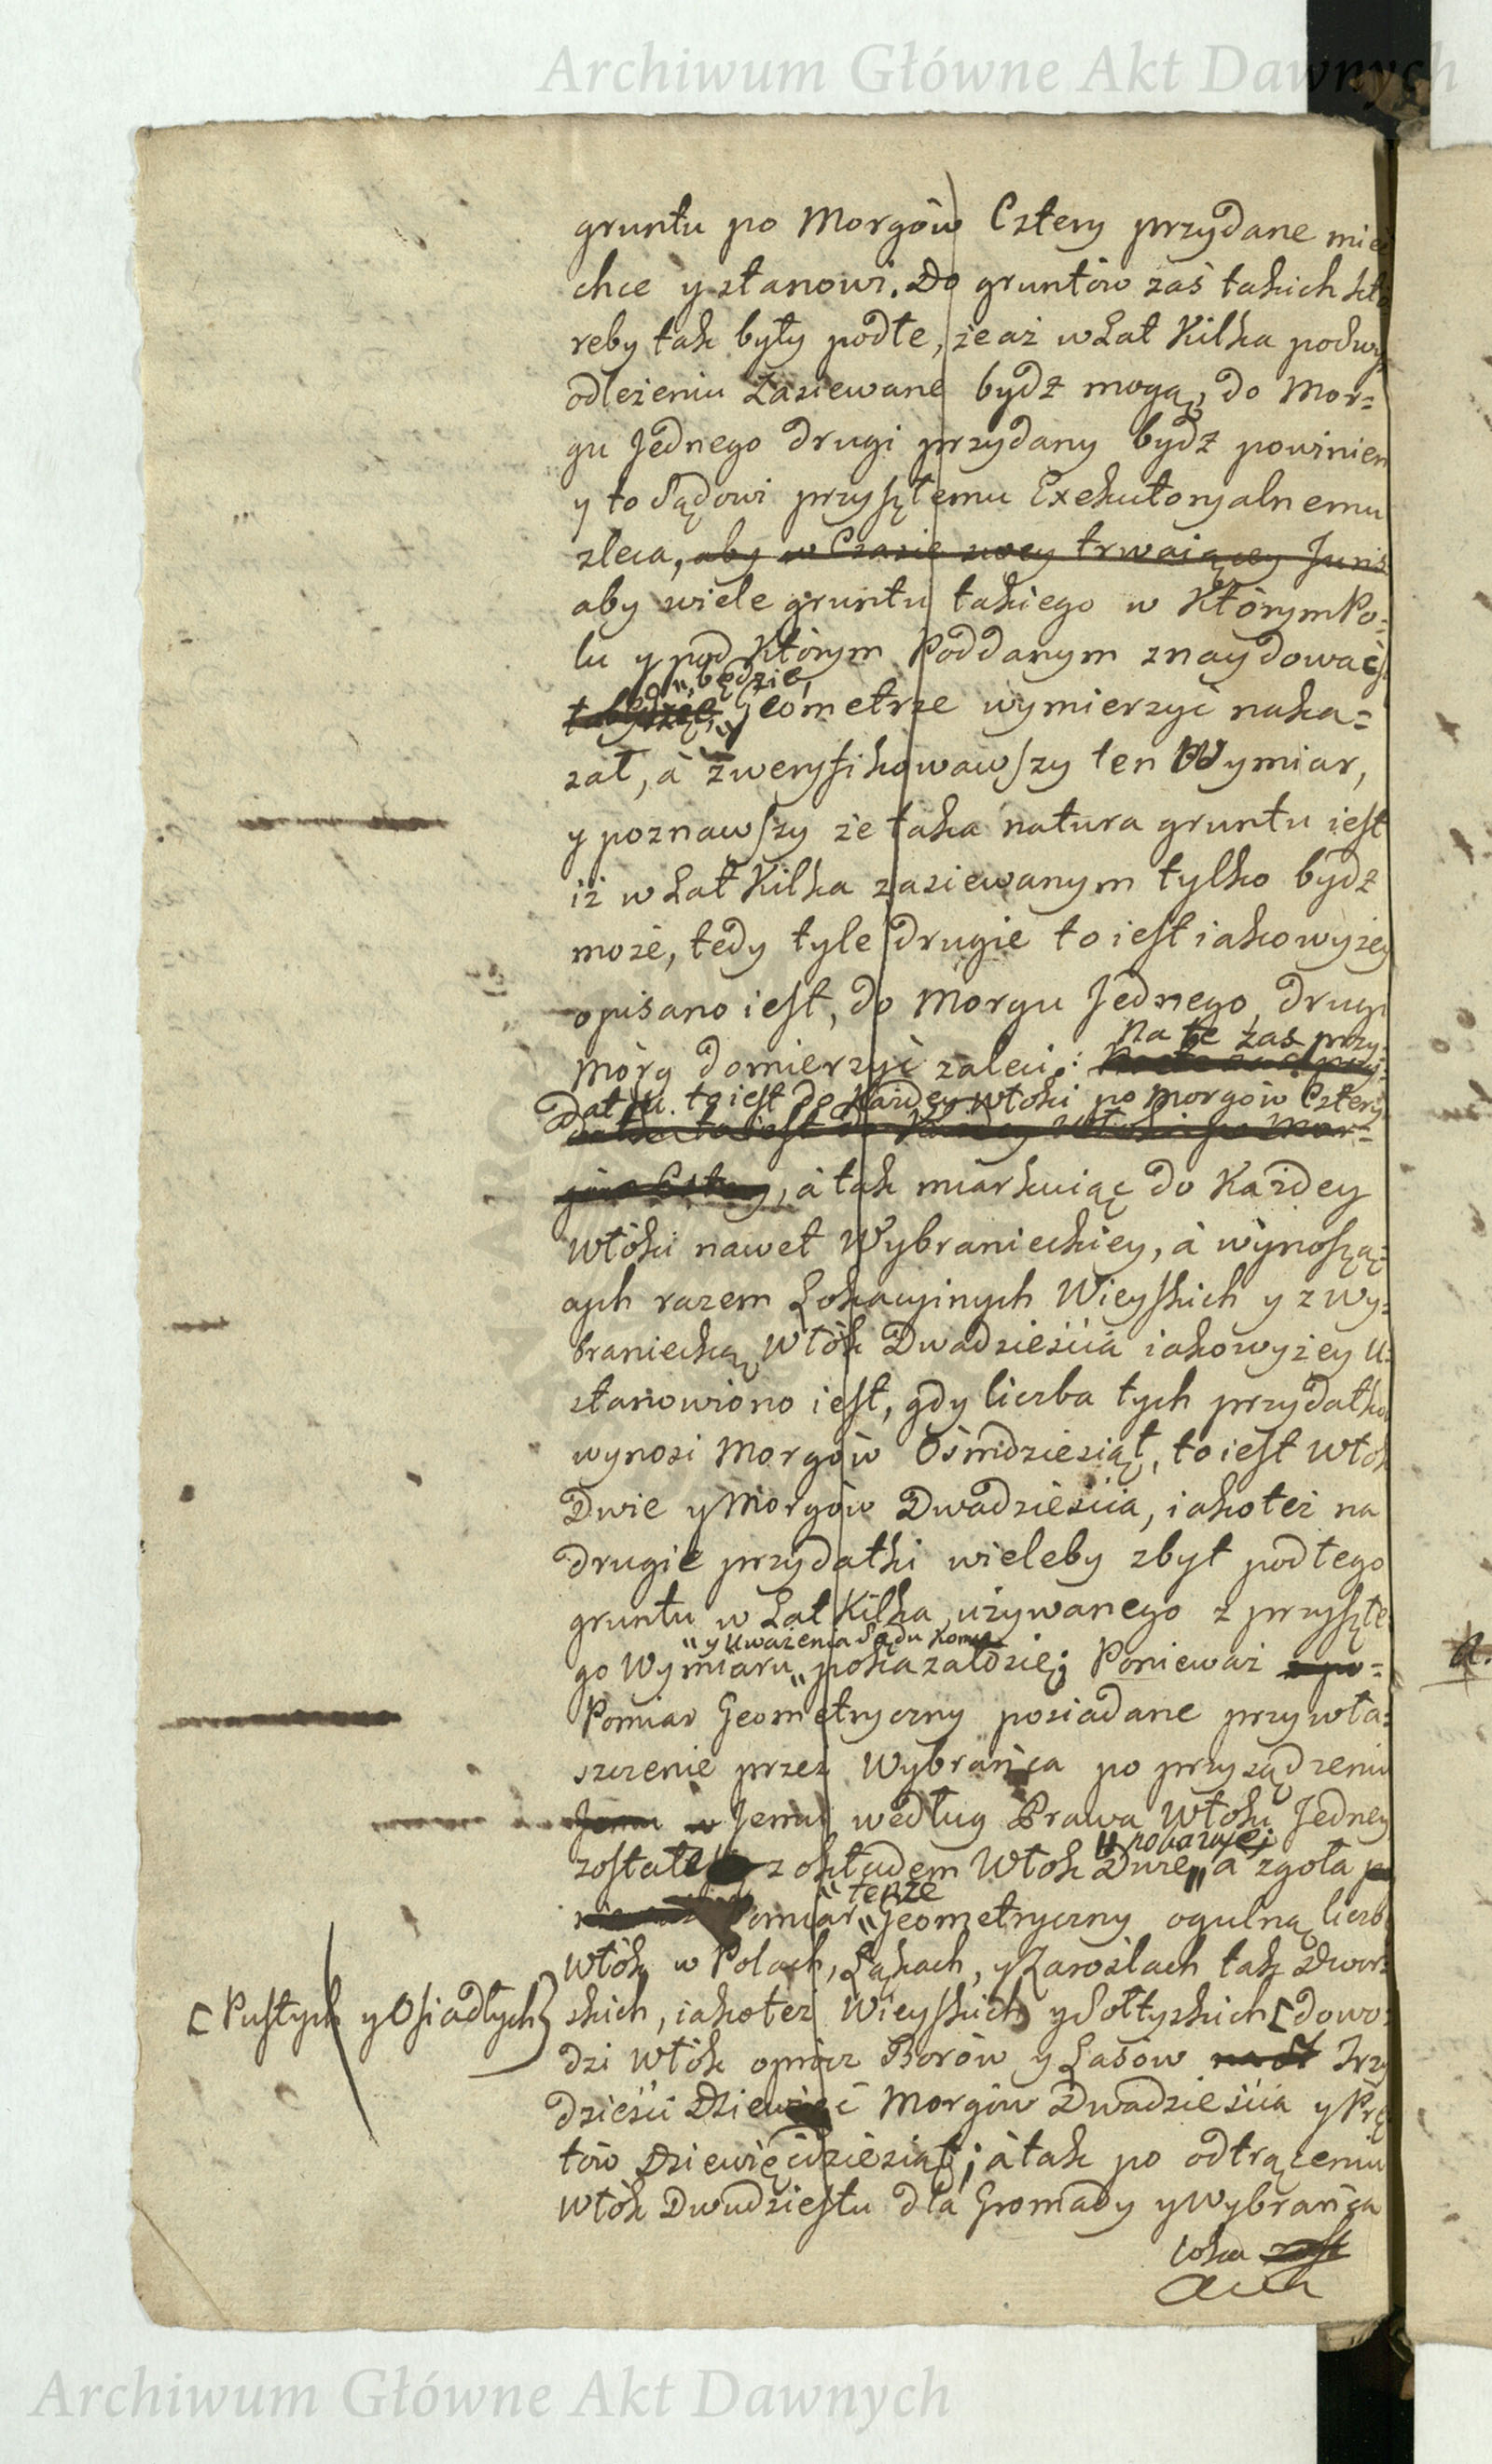 Archiwum Główne Akt Dawnych
gruntu po Morgów Cztery przydane mieć
chce y stanowi. Do gruntów zaś takich któ
reby tak były podłe, że aż w Lat Kilka podwy
odleżeniu Zasiewane bydź mogą, do Mor=
gu Jednego drugi przydany bydź powinien
y to Sądowi przyszłemu Exekutoryalnemu
zleca, aby w Czasie swey trwaiącey Juris
aby wiele gruntu takiego w którym Po=
lu y pod którym Poddanym znaydować
będzie,
Geometrze wymierzyć naka=
zał, à zweryfikowawszy ten Wymiar,
y poznawszy że taka natura gruntu iest
iż w Lat Kilka zasiewanym tylko bydź
może, tedy tyle drugie to iest iako wyżey
opisano iest, do Morgu Jednego drugi
Na te zas przy=
Mórg domierzyć zaleci:
datki to iest do Każdey włoki po Morgów Cztery
datki to iest do Każdey Włoki po Mor=
gów Cztery, à tak miarkuiąc do Każdey
Włóki nawet Wybranieckiey, à wynoszą=
cych razem Lokacyinych Wieyskich y z wy=
braniecką Włók Dwadzieścia iako wyżey u=
stanowiono iest, gdy liczba tych przydatków
wynosi Morgów Ośmdziesiąt, to iest Włók
Dwie y Morgów Dwadzieścia, iakoteż na
drugie przydatki wieleby zbyt podłego
gruntu w Lat Kilka używanego z przyszłe
" y uważenia Sądu
go Wymiaru " pokazało się; Ponieważ
Pomiar Geometryczny posiadane przywła=
szczenie przez Wybrańca po przysądzeniu
Jemu w Jemu według Prawa Włoki Jedney
" pokazuje;
zostałey z okładem Włok Dwie " a zgoła
" tenże
Pomiar " Geometryczny ogulną liczbę
Włók w Polach, Łąkach, y Zaroślach tak Dwor=
[ Pustych y Osiadłych
skich, iakoteż Wieyskich y Sołtyskich [ dowo=
dzi Włók oprócz Borów y Lasów Trzy
dzieści Dziewięć Morgów Dwadzieścia y Prę
tów Dziewięćdziesiąt; à tak po odtrąceniu
Włók Dwudziestu dla Gromady y Wybrańca
loka
Archiwum Główne Akt Dawnych